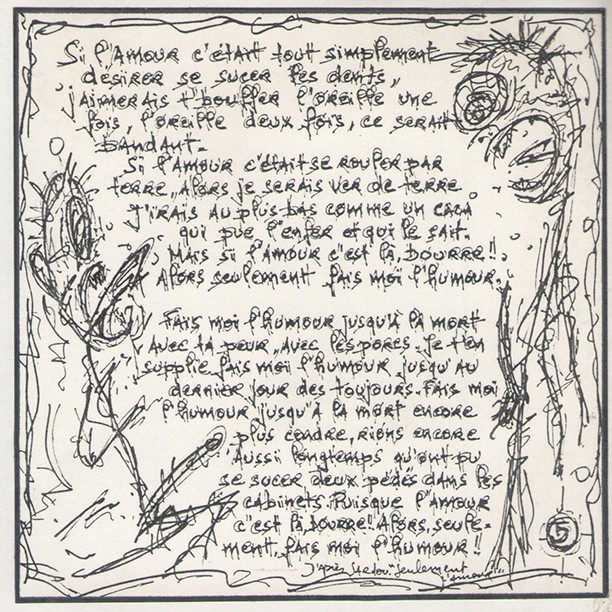 Si l'AMOUR c'était tout simplement
désirer se sucer les dents,
j'aimerais t'bouffer l'oreille une
fois, l'oreille deux fois, ce serait
bandant.
Si l'AMOUR c'était se rouler par
terre, Alors je serais ver de terre
J'irais au plus bas comme un caca
qui pue l'enfer et qui le sait.
MAIS si l'AMOUR c'est là, BOURRE!!
Alors seulement fais moi l'humour.
FAIS moi l'humour jusqu'à la mort
Avec ta peur, avec les porcs. Je t'en
supplie fais moi l'humour jusqu'au
dernier jour des toujours. Fais moi
l'humour jusqu'à la mort encore
plus, rions encore
Aussi longtemps qu'ont pu
se sucer deux pédés dans les
cabinets. Puisque l'amour
c'est là, BOURRE! Alors, seule-
ment, fais moi l'humour!!
D'après "seulement l'amour"